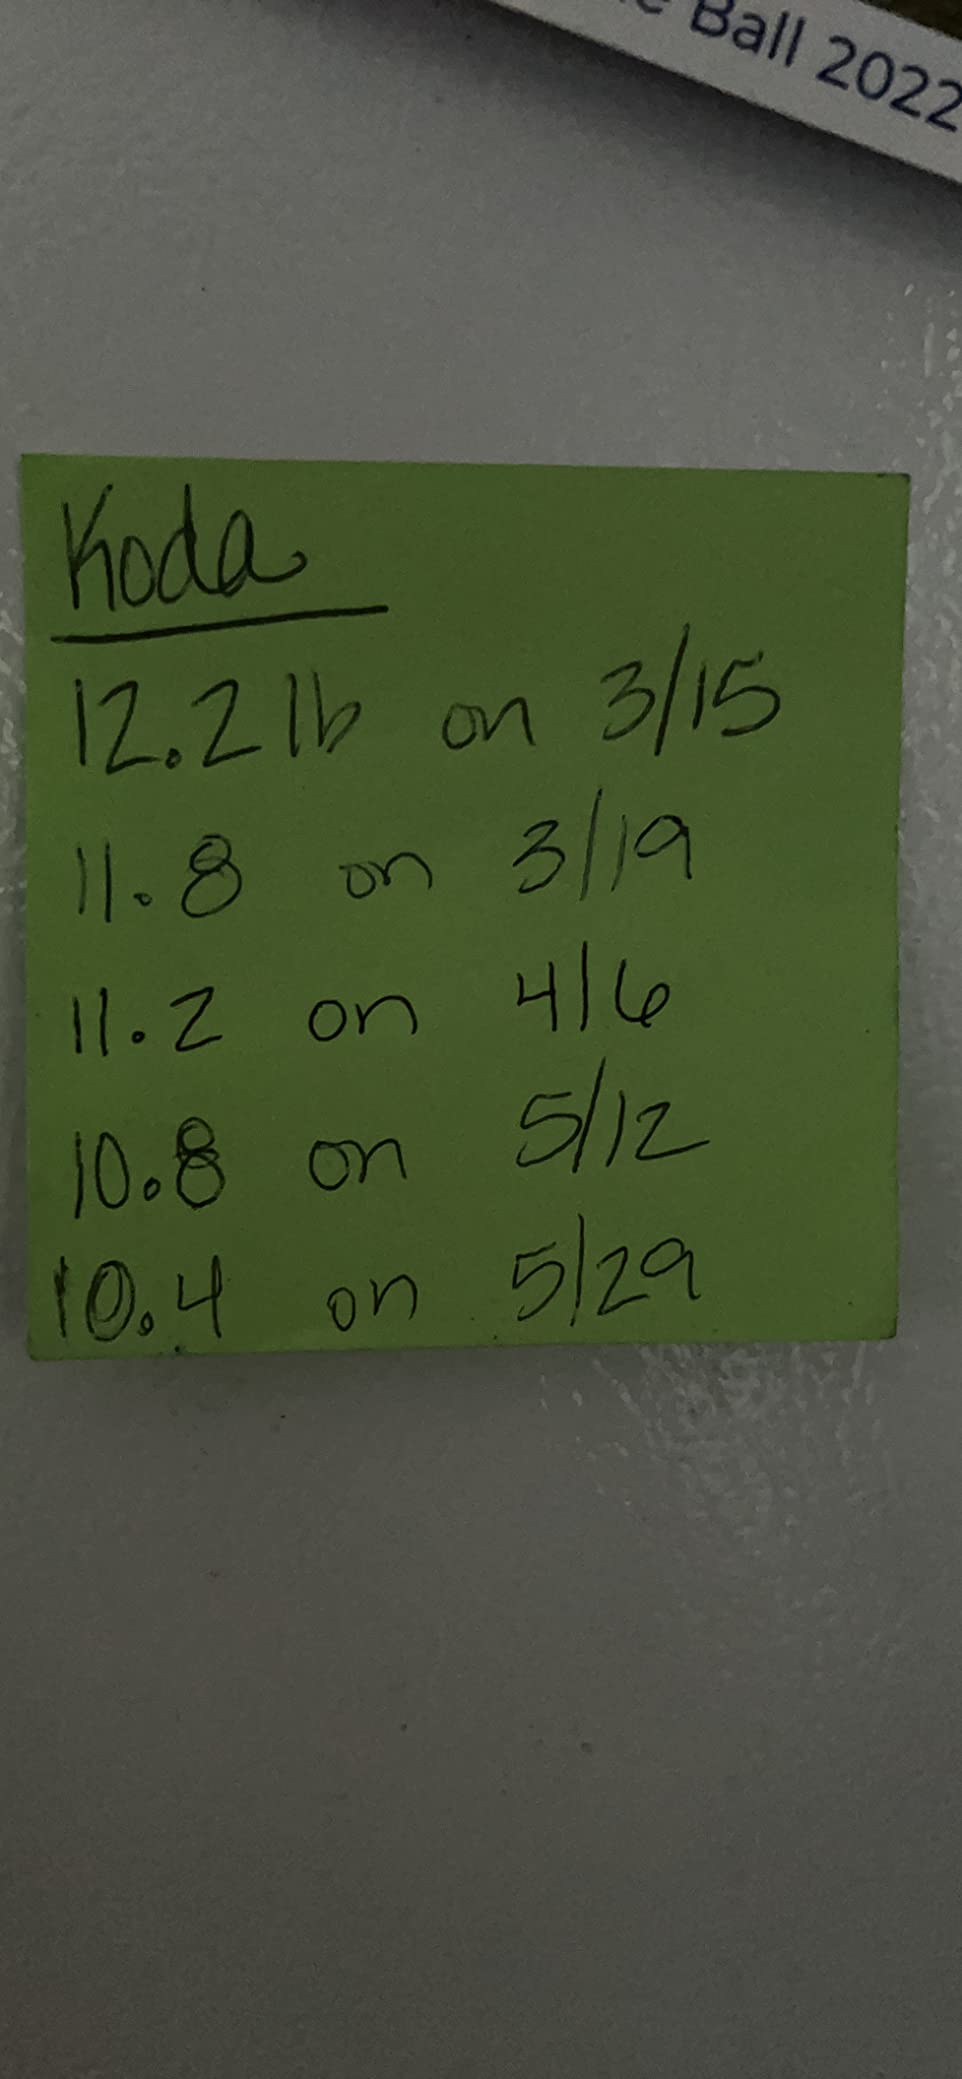 Ball 2022
Koda
12.2 lb on 3/15
11.8 on 3/19
11.2 on 4/6
10.8 on 5/12
10.4 on 5/29